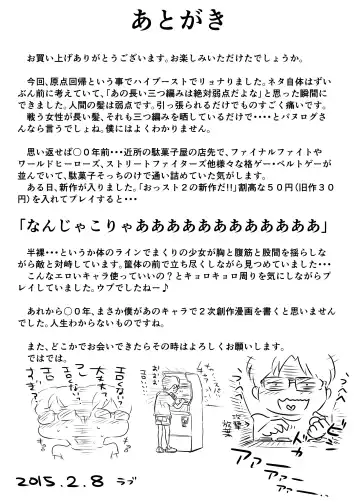 あとがき
お買い上げありがとうございます。お楽しみいただけたでしょうか。
今回、原点回帰という事でハイブーストでリョナりました。ネタ自体はずい
ぶん前に考えていて、「あの長い三つ編みは絶対弱点だよな」と思った瞬間に
できました。人間の髪は弱点です。引っ張られるだけでものすごく痛いです。
戦う女性が長い髪、それも三つ編みを晒しているだけで・・・・とバヌログさ
んなら言うでしょね。僕にはよくわかりません。
思い返せば〇０年前・・・近所の駄菓子屋の店先で、ファイナルファイトや
ワールドヒーローズ、ストリートファイターズ他様々な格ゲー・ベルトゲーが
並んでいて、駄菓子そっちのけで通い詰めていた気がします。
ある日、新作が入りました。「おっスト２の新作だ!!」割高な５０円（旧作３０
円）を入れてプレイすると・・・
「なんじゃこりゃあああああああああああああ」
半裸・・・というか体のラインでまくりの少女が胸と腹筋と股間を揺らしな
がら敵と対峙しています。筐体の前で立ち尽くしながら見つめていました・・・
こんなエロいキャラ使っていいの？とキョロキョロ周りを気にしながらプ
レイしていました。ウブでしたねー♪
あれから〇０年、まさか僕があのキャラで２次創作漫画を書くと思いませ
んでした。人生わからないものですね。
また、どこかでお会いできたらその時はよろしくお願いします。
ではでは。
エロくない？
大丈夫？
アァー
アァー
アァー
2015.2.8 ラブ